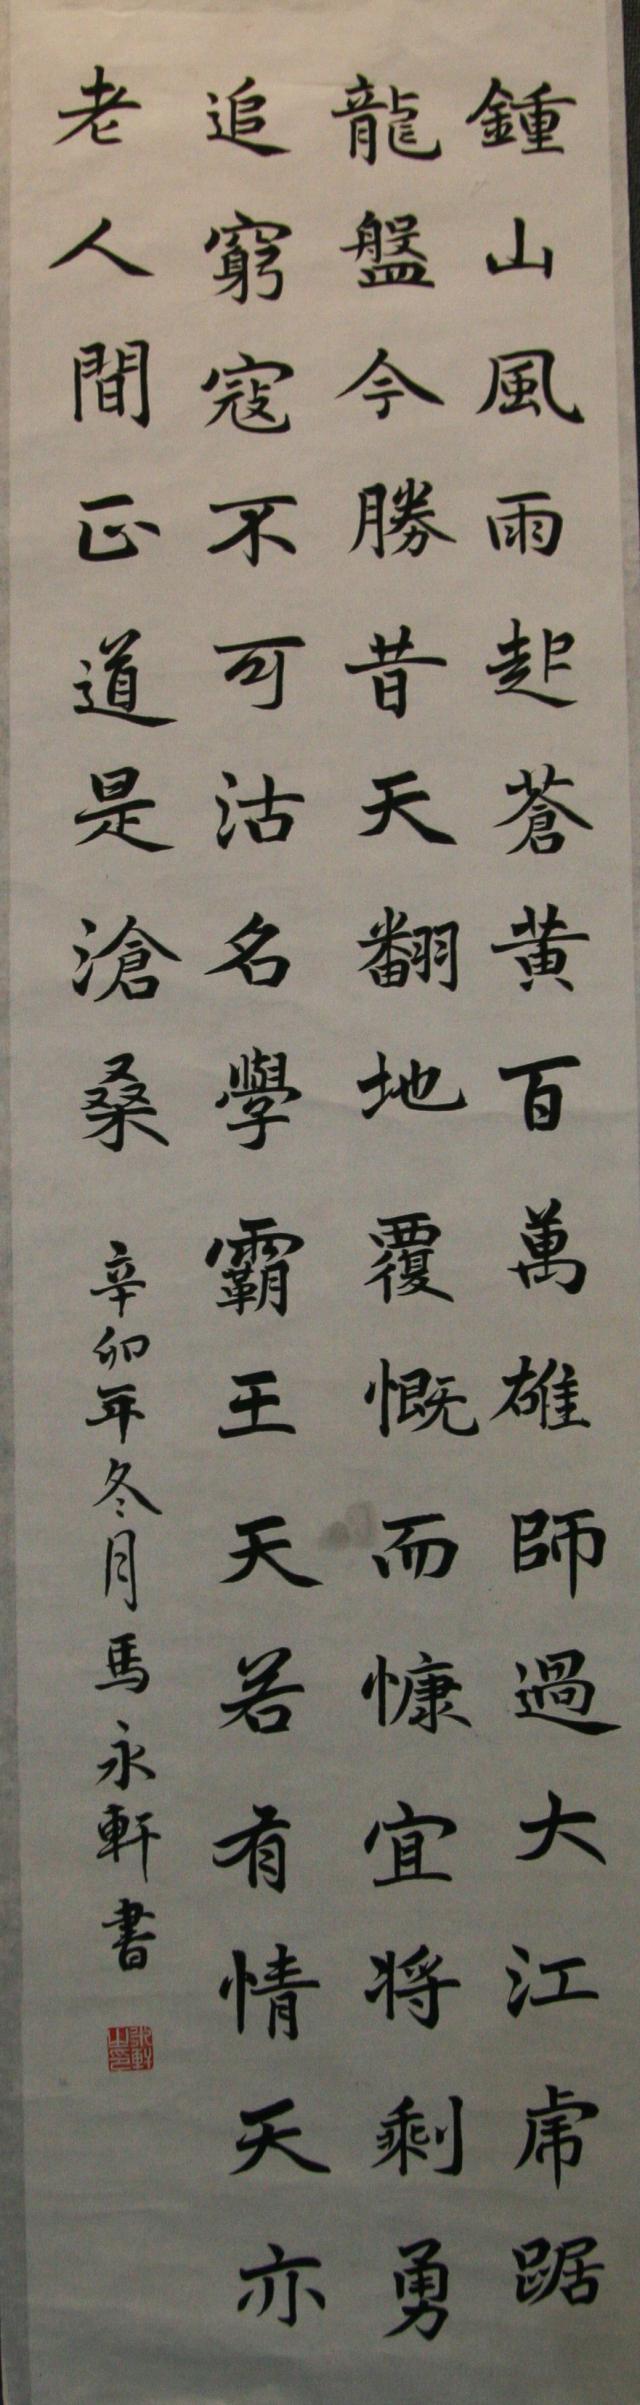 鍾山風雨起蒼黄百萬雄師過大江虎踞
龍盤今勝昔天翻地覆慨而慷宜将剩勇
追窮寇不可沽名學霸王天若有情天亦
老人間正道是滄桑
辛卯年冬月馬永軒書